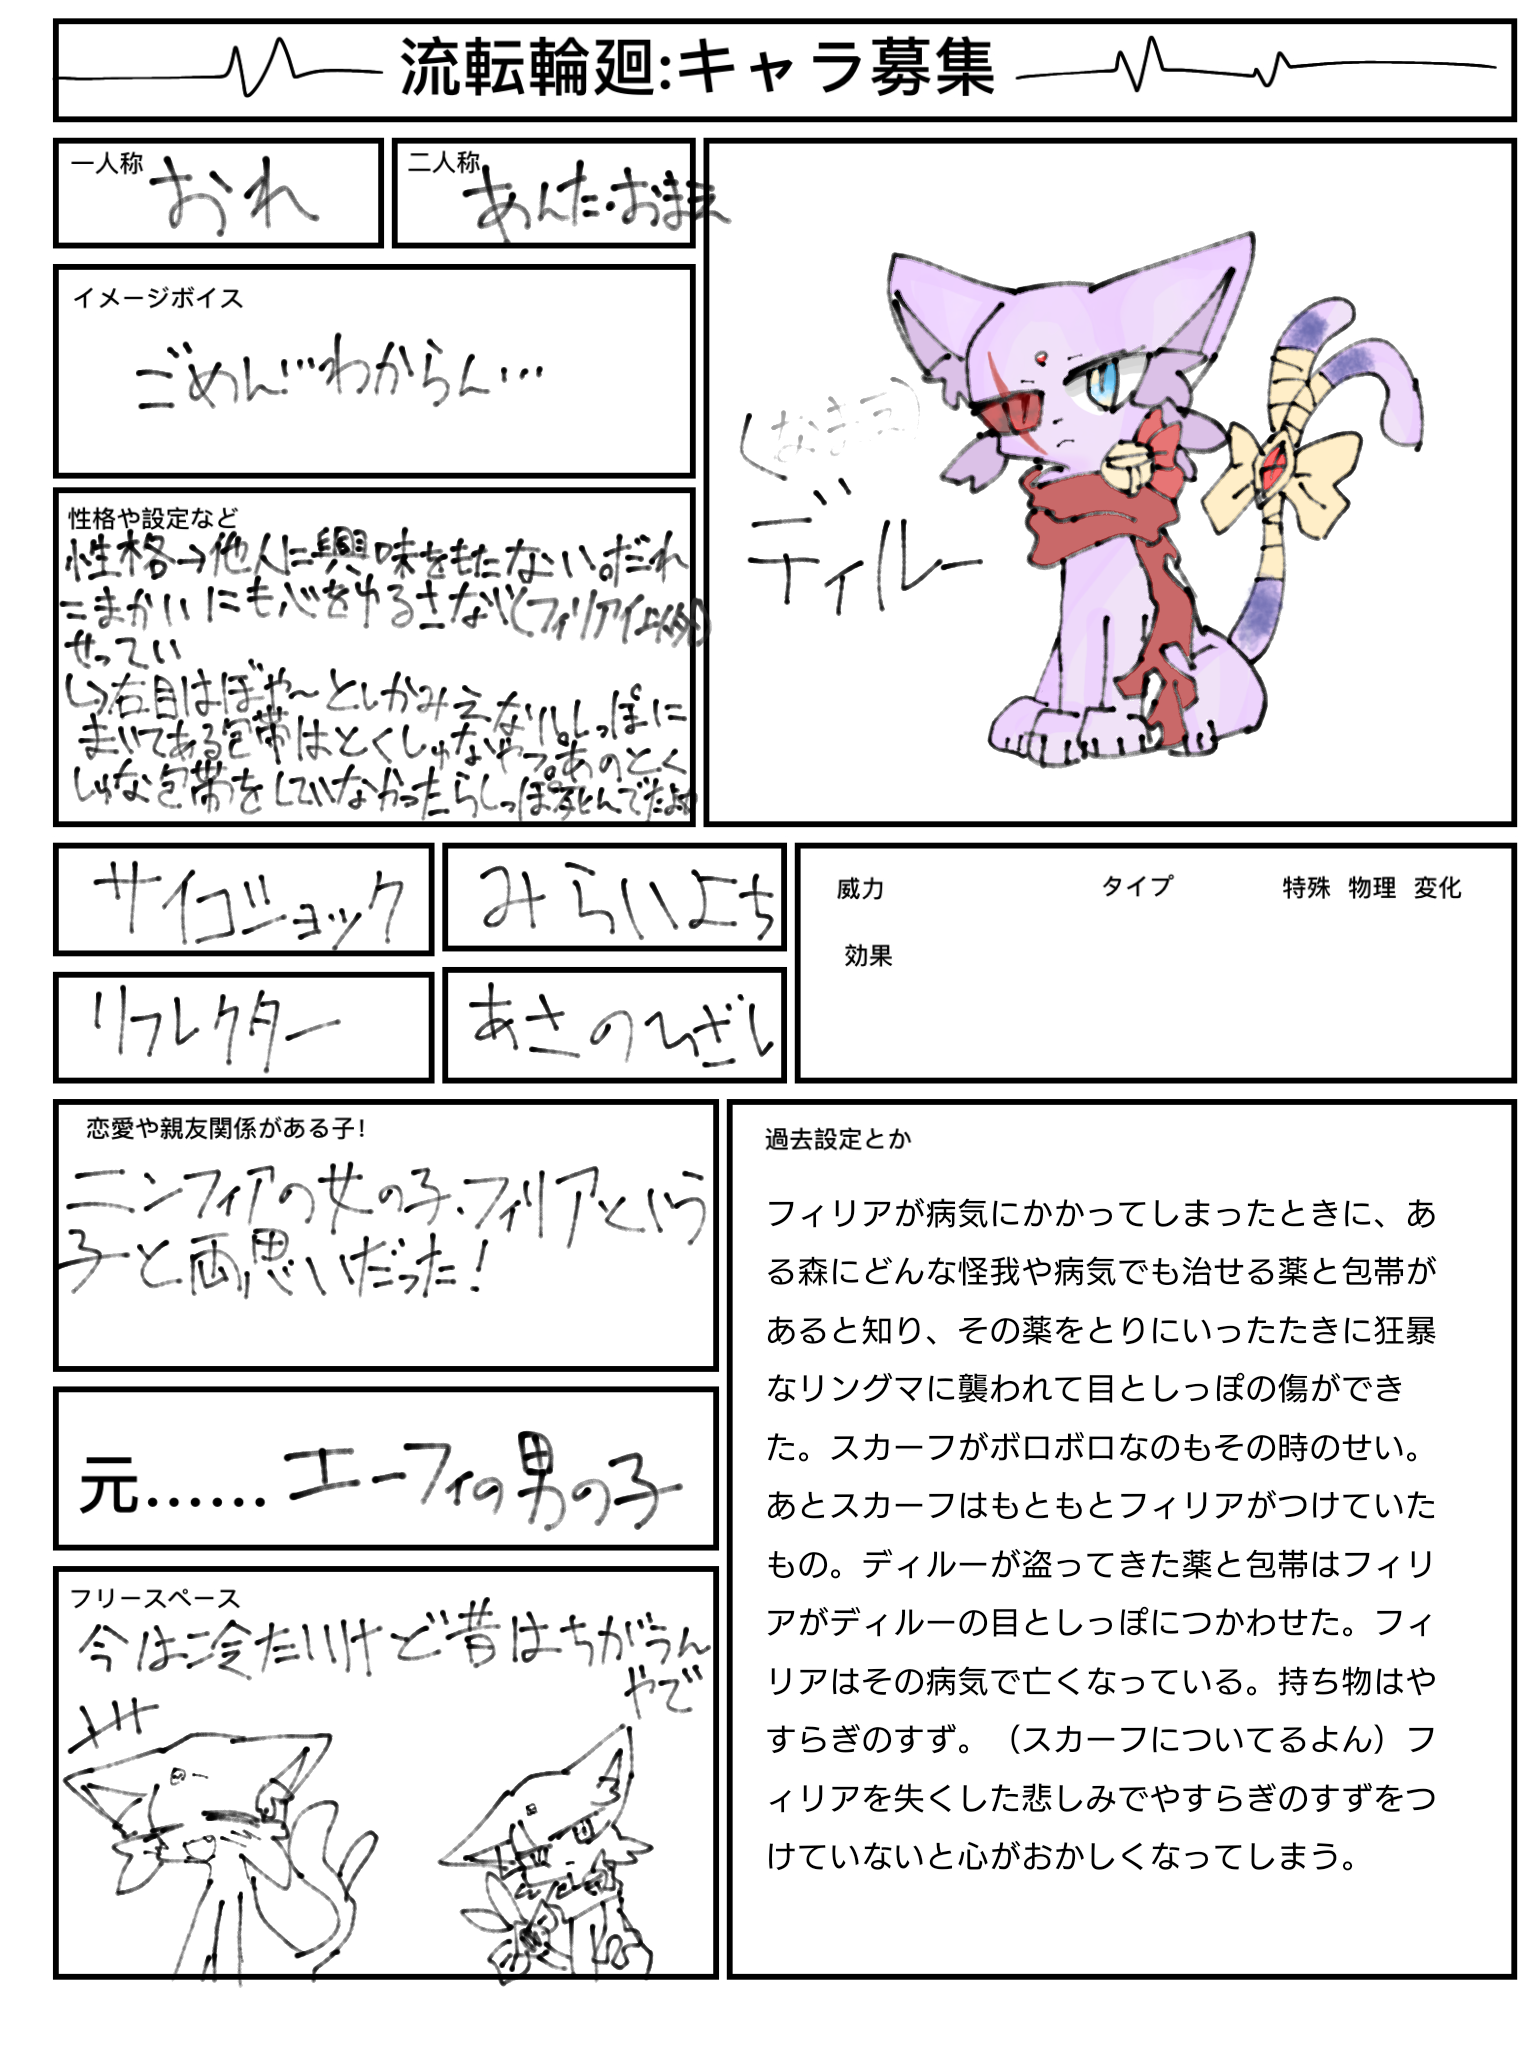 流転輪廻:キャラ募集
一人称
おれ
二人称
あんた・おまえ
イメージボイス
ごめん…わからん…
性格や設定など
性格→他人に興味をもたない。だれ
にも心をゆるさない(フィリア以外)
こまかい
せってい
↳右目はぼや〜としかみえない。しっぽに
まいてある包帯はとくしゅなやつ。あのとく
しゅな包帯をしていなかったらしっぽ死んでたよ
ディルー
サイコショック
みらいよち
リフレクター
あさのひざし
威力
タイプ
特殊 物理 変化
効果
恋愛や親友関係がある子!
ニンフィアの女の子、フィリアという
子と両思いだった!
元……エーフィの男の子
フリースペース
今は冷たいけど昔はちがうん
やで
過去設定とか
フィリアが病気にかかってしまったときに、あ
る森にどんな怪我や病気でも治せる薬と包帯が
あると知り、その薬をとりにいったたきに狂暴
なリングマに襲われて目としっぽの傷ができ
た。スカーフがボロボロなのもその時のせい。
あとスカーフはもともとフィリアがつけていた
もの。ディルーが盗ってきた薬と包帯はフィリ
アがディルーの目としっぽにつかわせた。フィ
リアはその病気で亡くなっている。持ち物はや
すらぎのすず。（スカーフについてるよん）フ
ィリアを失くした悲しみでやすらぎのすずをつ
けていないと心がおかしくなってしまう。